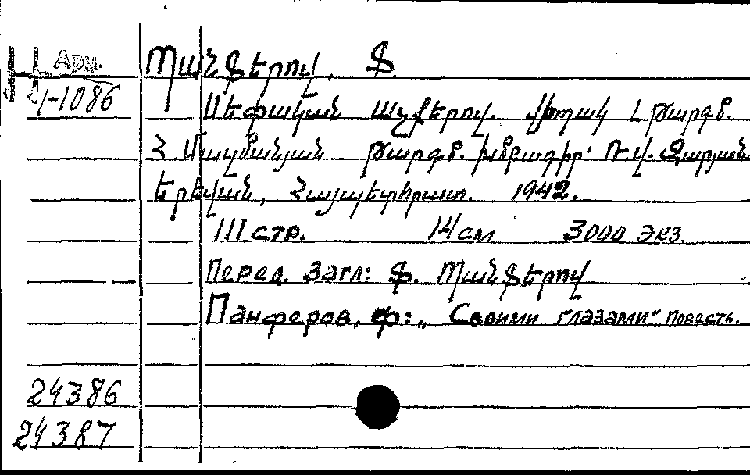 Арм.
Պանֆերով, Ֆ.
4-1086
Սեփական աչքերով. վիպակ Լ թարգմ.
Հ Մազմանյան թարգմ. խմբագիր՝ Ռ. վ. Զարյան
Երևան, Հայպետհրատ. 1942.
111 стр. 14 см 3000 экз.
Перед. загл: Ֆ. Պանֆերով
Панферов, Ф: „ Своими глазами" повесть.
24386
24387